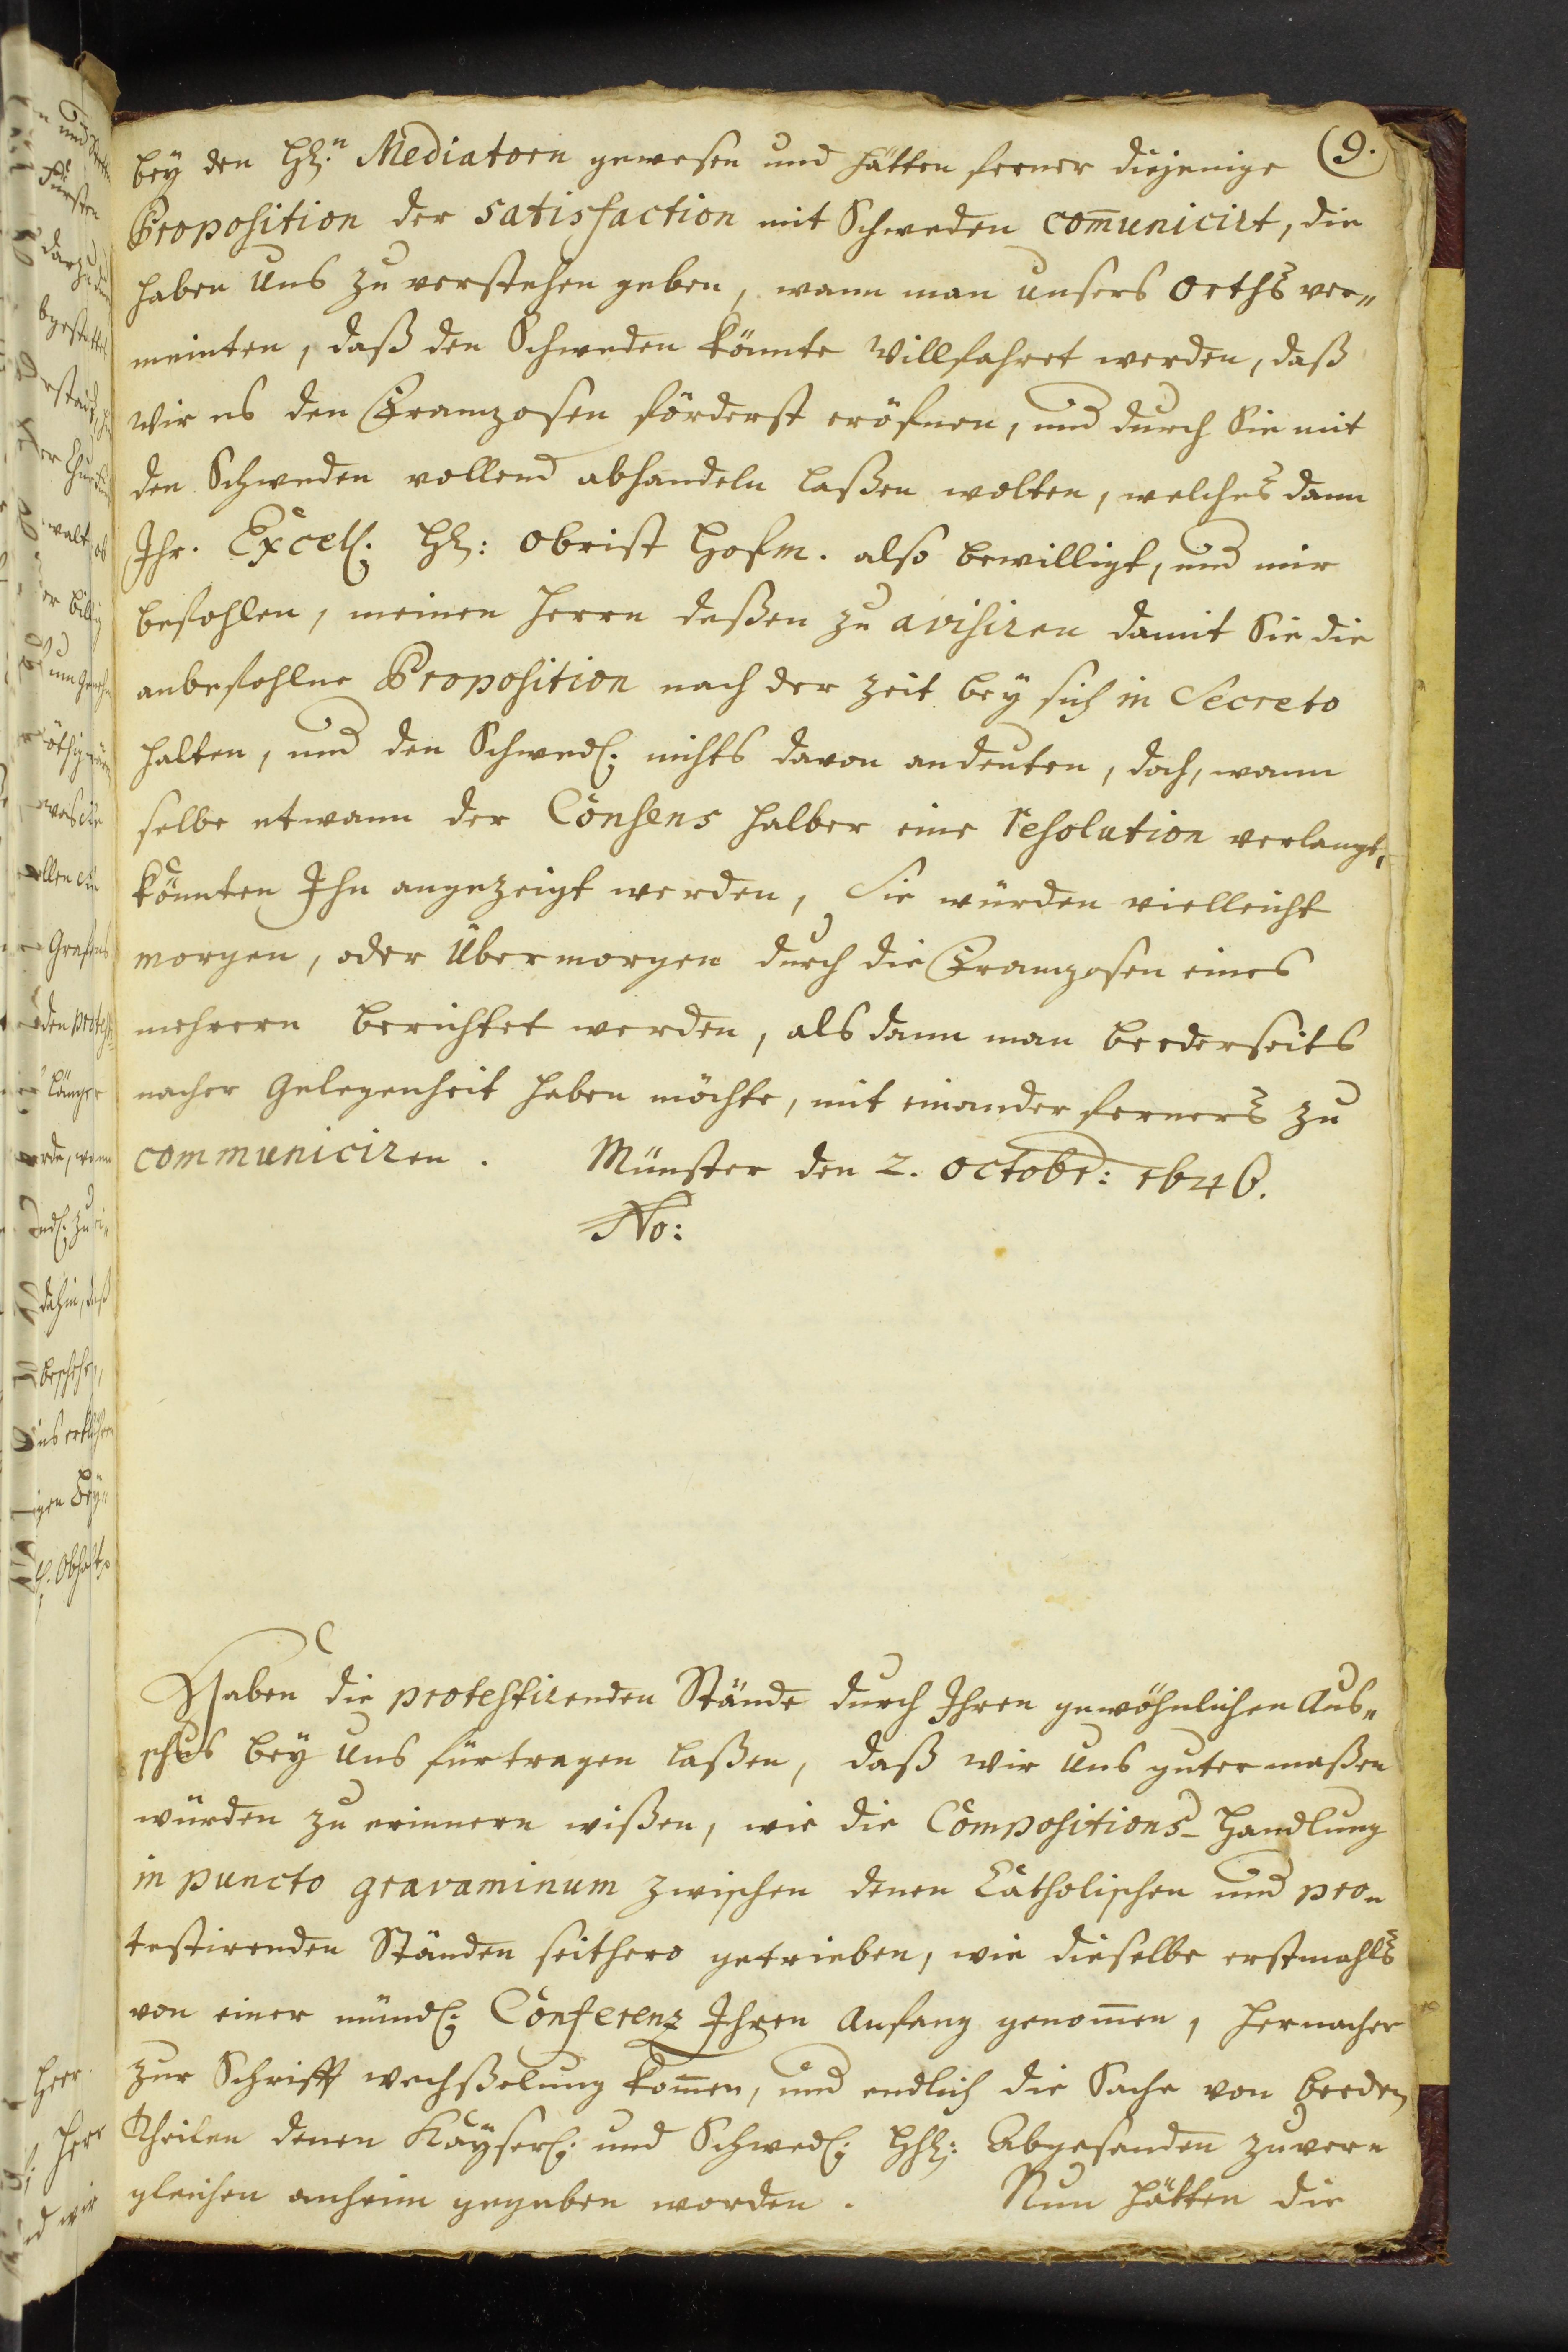 9.
bey den Hh:n Mediatorn gewesen und hätten ferner diejenige
Proposition der satisfaction mit Schweden com̄unicirt, die
haben Uns zu verstehen geben, wann man unsers Orths ver„
meinten, daß den Schweden könnte Willfahret werden, daß
Wir es den Franzosen förderst eröfnen, und durch Sie mit
den Schweden vollend abhandeln laßen wolten, welches dann
Ihr. Excell: Hh: Obrist Hofm. also bewilligt, und mir
befohlen, meinen Herrn deßen zu avisiren damit Sie die
anbefohlne Proposition nach der Zeit bey sich in Secreto
halten, und den Schwed: nichts davon andeuten, doch, wann
selbe etwann der Consens halber eine resolution verlangt,
könnten Ihn angezeigt werden, Sie würden vielleicht
morgen, oder Übermorgen durch die Franzosen eines
mehrern berichtet werden, als dann man beederseits
nacher Gelegenheit haben möchte, mit einander ferners zu
communiciren. Münster den 2. Octobr: 1646.
No:
Haben die protestirenden Stände durch Ihren gewöhnlichen Aus„
schus bey Uns fürtragen laßen, daß wir Uns guter maßen
würden zu erinnern wißen, wie die Compositions-Handlung
in puncto gravaminum zwischen denen Catholischen und pro„
testirenden Ständen seithero getrieben, wie dieselbe erstmahls
von einer münd: Conferenz Ihren Anfang genom̄en, hernacher
zur Schrifft wechßelung kom̄en, und endlich die Sache von beeden
Theilen denen Kayserl: und Schwed: Hh: Abgesanden zuver„
gleichen anheim gegeben worden. Nun hätten die